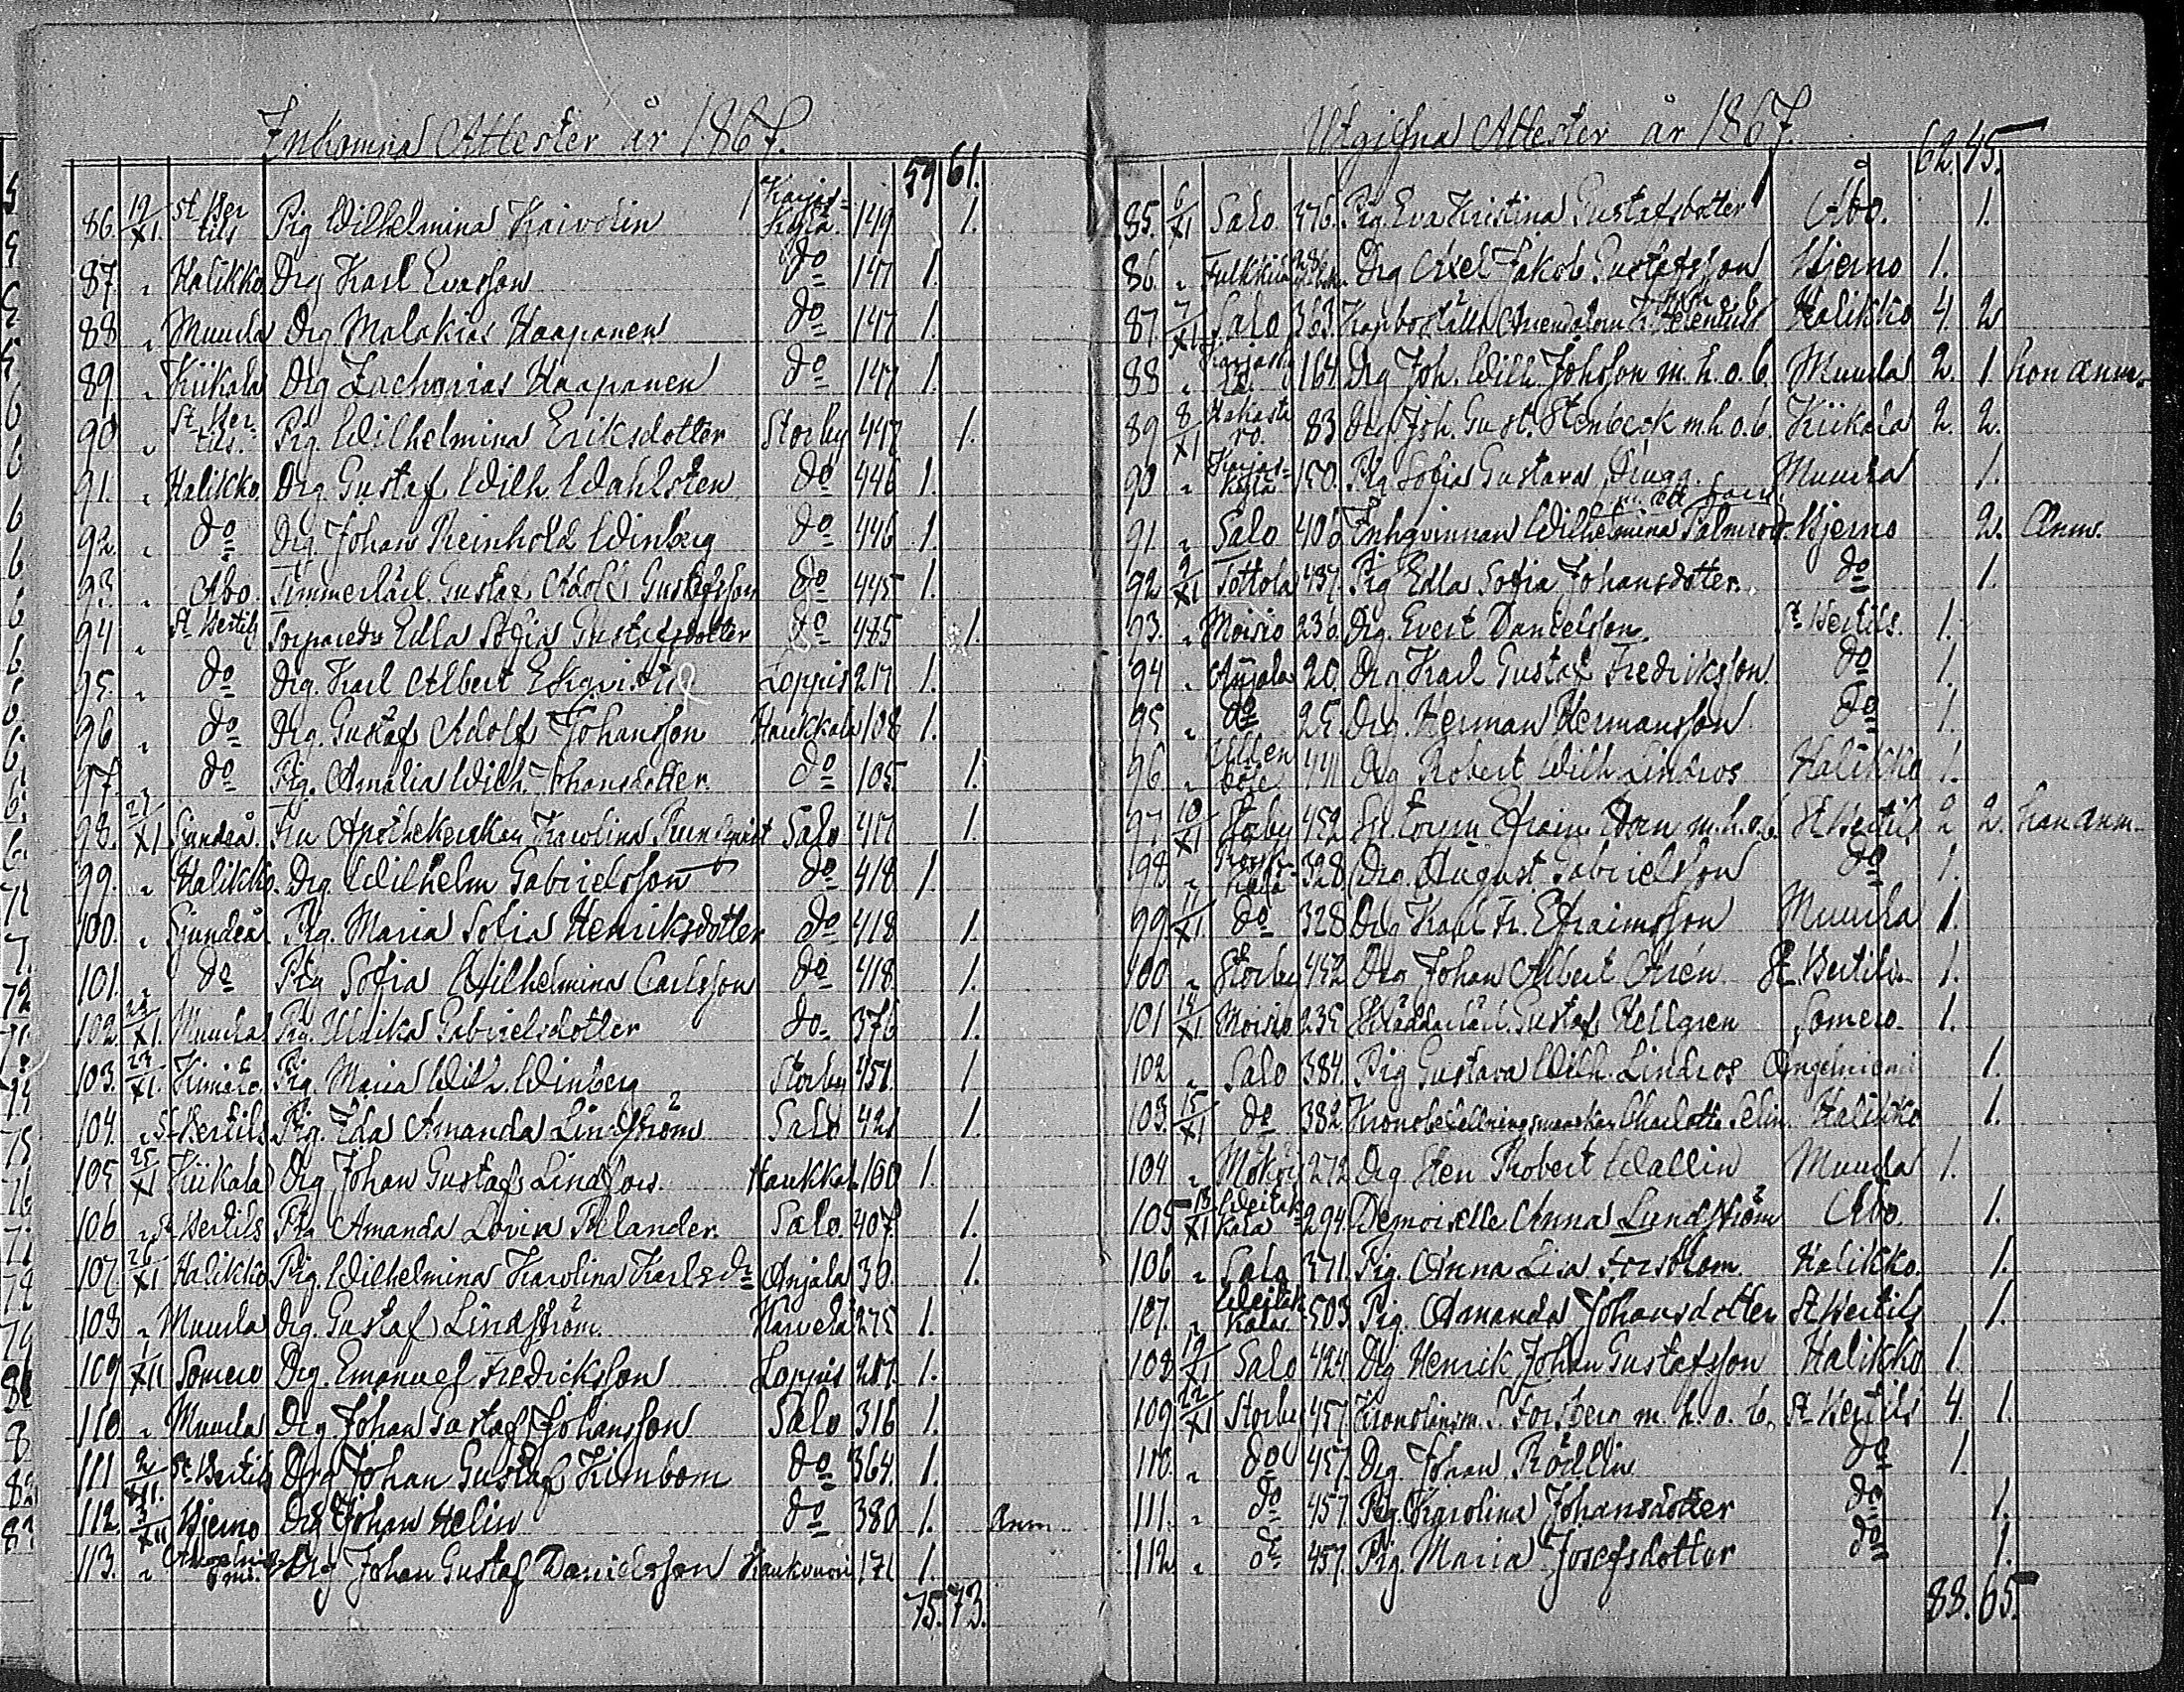 Inkomna Attester år 1867.
59 61.
86. 19/XI. St Ber tils Pig Wilhelmina Kaivolin Karjas= kylä. 149 1.
87. " Halikko Drg Karl Evasson do 147 1.
88 " Muurla Drg Malakias Haapanen do 147 1.
89. " Kiikala Drg Zacharias Haapanen do 147 1.
90 " St Ber tils. Pig. Wilhelmina Eriksdotter Storby 447 1.
91. " Halikko Drg. Gustaf Wilh. Wahlsten do 446 1.
92. " do Drg. Johan Reinhold Winberg do 446 1.
93. " Åbo. Timmerlärl. Gustaf Adolf Gustafsson do 445 1.
94 " St Bertils Edla Sofia Gustafsdotter do 475 1.
95. " do Drg. Karl Albert Ekqvist Loppis 217 1.
96 " do Drg. Gustaf Adolf Johansson Haukkala 108 1.
97. " do Pig. Amalia Wilh. Johansdotter do 105. 1.
98. 21/XI Sjundeå. Fru Apothekerskan Karolina Rundqvist Salo 417 1.
99. " Halikko. Drg. Wilhelm Gabrielsson do 418 1.
100. " Sjundeå Pig. Maria Sofia Henriksdotter do 418 1.
101. " do Pig Sofia Wilhelmina Carlsson do 418. 1.
102. 22/XI. Muurla Pig. Ulrika Gabrielsdotter do. 376 1.
103. 23/XI. Kimito. Pig. Maria Wilh. Winberg Storby 451. 1
104. " St Bertils Pig. Ida Amanda Lindström Salo 421 1.
105 25/XI Kiikala Drg Johan Gustaf Lindfors. Haukkal. 100 1.
106 " St Bertils Pig Amanda Lovisa Selander. Salo. 407. 1.
107. 26/XI Halikko Pig. Wilhelmina Karolina Karlsdr Anjala 30. 1.
108 " Muurla Drg. Gustaf Lindström. Karvela 275 1.
109 1/XII Somero Drg. Emanuel Fredricksson Loppis 217. 1.
110. " Muurla Drg. Johan Gustaf Johansson Salo 316 1.
111 2/XII. St Bertils Drg Johan Gustaf Kimbom do 364. 1.
112. 3/XII Bjerno Drg Johan Helin do 380 1. Anm.
113. " Drg Johan Gustaf Danielsson Haukvuori 171 1.
75. 73.
Utgifna Attester år 1867.
62. 45.
85. 6/XI Salo. 376. Pig. Eva Kristina Gustafsdotter Åbo. 1.
86. " 286 Drg Axel Jakob Gustafsson Bjerno 1.
87. 7/XI Salo 363. m. h. o. b. Halikko 4. 2
88 " 164. Drg Joh. Wilh. Johsson m. h. o. b. Muurla 2. 1. hon anm.
89 8/XI Hakasta ro. 83 Drg. Joh. Gust. Stenbeck m. h. o. b. Kiikala 2. 2.
90 " Karjas= kylä 150. Pig Sofia Gustava Muurla 1.
91. " Salo 406 Inhqvinnan Wilhelmina Palmroos. Bjerno 2. Anm.
92 9/XI Tottola 437. Pig Edla Sofia Johansdotter. do 1.
93. " Moisio 236. Drg. Evert Danielsson. St Bertils. 1.
94 " Anjala 20. Drg. Karl Gustaf Fredriksson do 1.
95 " do 25. Drg. Herman Hermansson do 1.
96. " 441 Drg Robert Wilh Lindros Halikko 1.
97. 10/XI Storby 452 m. h. o. b. St Bertils 2 2. han anm.
98. " 328. Drg. August Gabrielsson do 1.
99. 11/XI. do 328 Drg Karl Fr. Efraimsson Muurla 1.
100 " Storby 452 Drg Johan Albert Arén St. Bertils. 1.
101 14/XI Moisio 235 Skräddarlärl. Gustaf Hellgren Somero. 1.
102 " Salo 384. Pig Gustava Wilh. Lindros Angelniemi 1.
103. 15/XI do 382 Kronobefallningsmanskan Charlotta Selin Halikko 1.
104 " 272 Drg Sten Robert Wallin Muurla 1.
105 18/XI Weitak= kala 294. Demoiselle Anna Lundström Åbo. 1.
106 " Salo 371. Pig. Anna Lisa Forsblom Halikko. 1.
107. " Weitak= kala 503 Pig. Amanda Johansdotter St Bertils 1.
108 19/XI Salo 424. Drg Henrik Johan Gustafsson Halikko 1.
109 22/XI Storby 457. Kronolänsm. S. Forsberg m. h. o. b. St Bertils 4. 1.
110. " do 457. Drg. Johan Rödlin do 1.
111. " do 457. Pig. Karolina Johansdotter do 1.
112 " do 457. Pig. Maria Josefsdotter do 1.
88. 65.